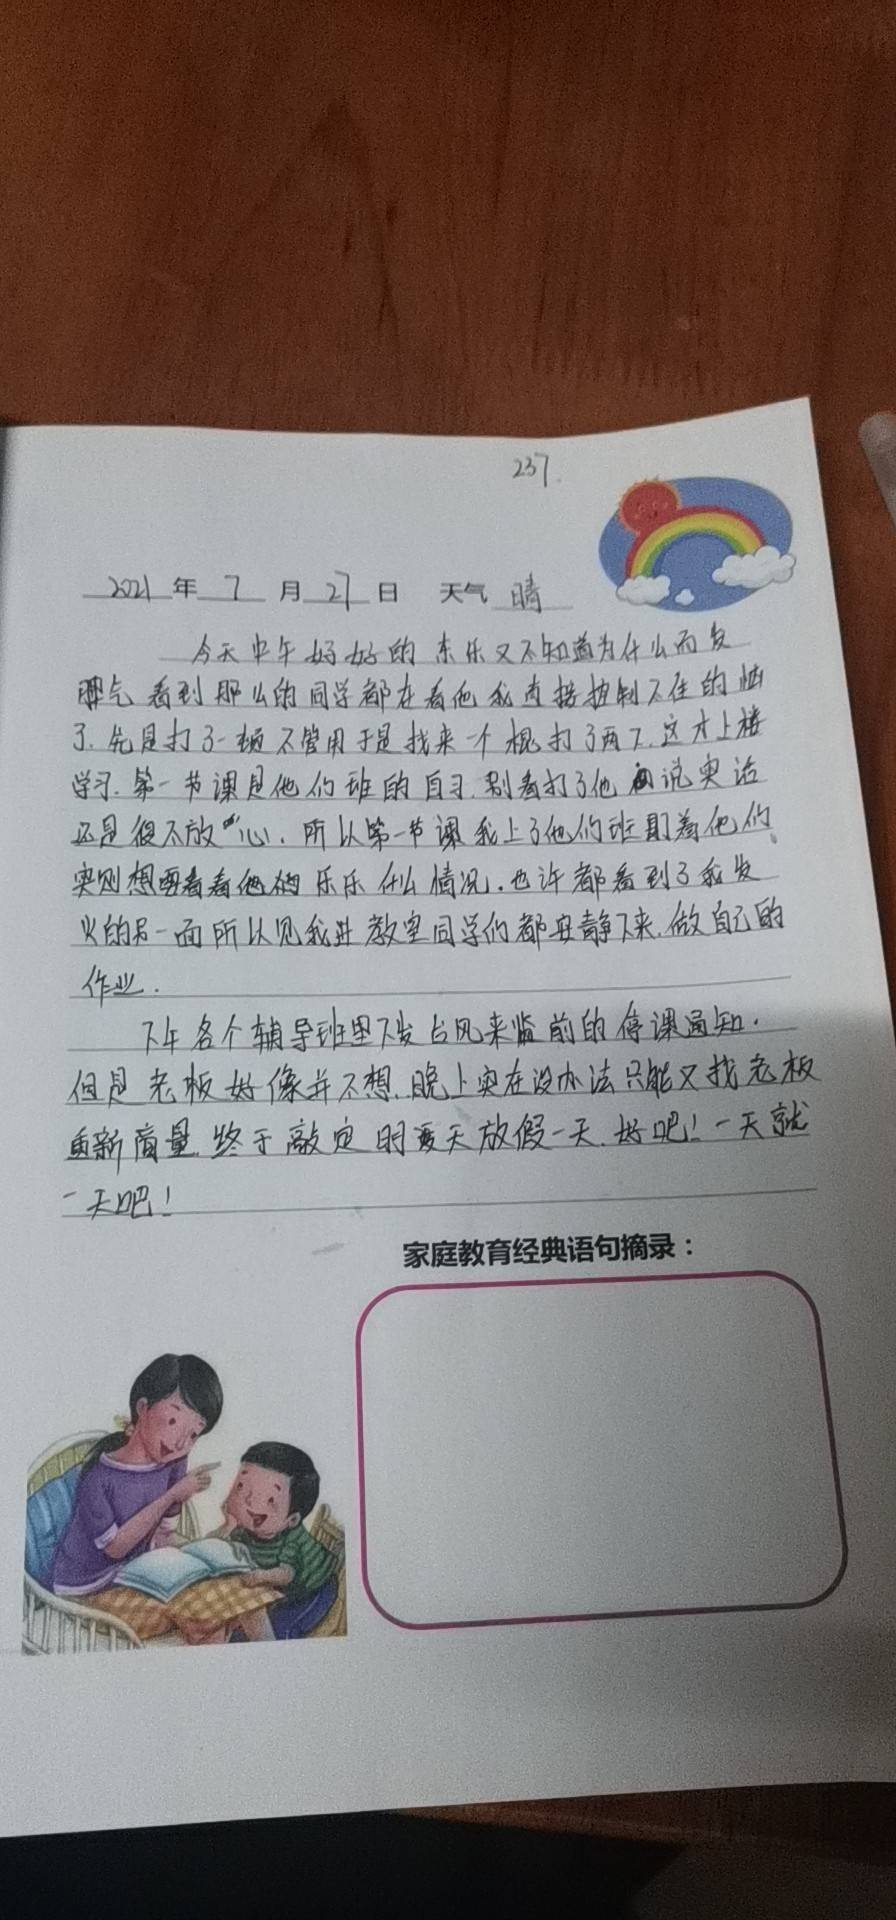 237.
2021年7月27日 天气 晴
今天中午好好的 东乐又不知道为什么而发
脾气 看到那么的同学都在看他 我直接控制不住的恼
了. 先是打了一顿 不管用 于是找来一个棍打了两下. 这才上楼
学习. 第一节课是他们班的自习. 别看打了他 说实话
还是很不放"心. 所以第一节课我上了他们班 盯着他们
实则想要看看他的 乐乐 什么情况. 也许都看到了我发
火的另一面 所以见我进教室同学们都安静下来. 做自己的
作业.
下午各个辅导班里下发台风来临前的停课通知.
但是老板好像并不想. 晚上实在没办法只能又找老板
重新商量. 终于敲定明天放假一天. 好吧! 一天就
一天吧!
家庭教育经典语句摘录：